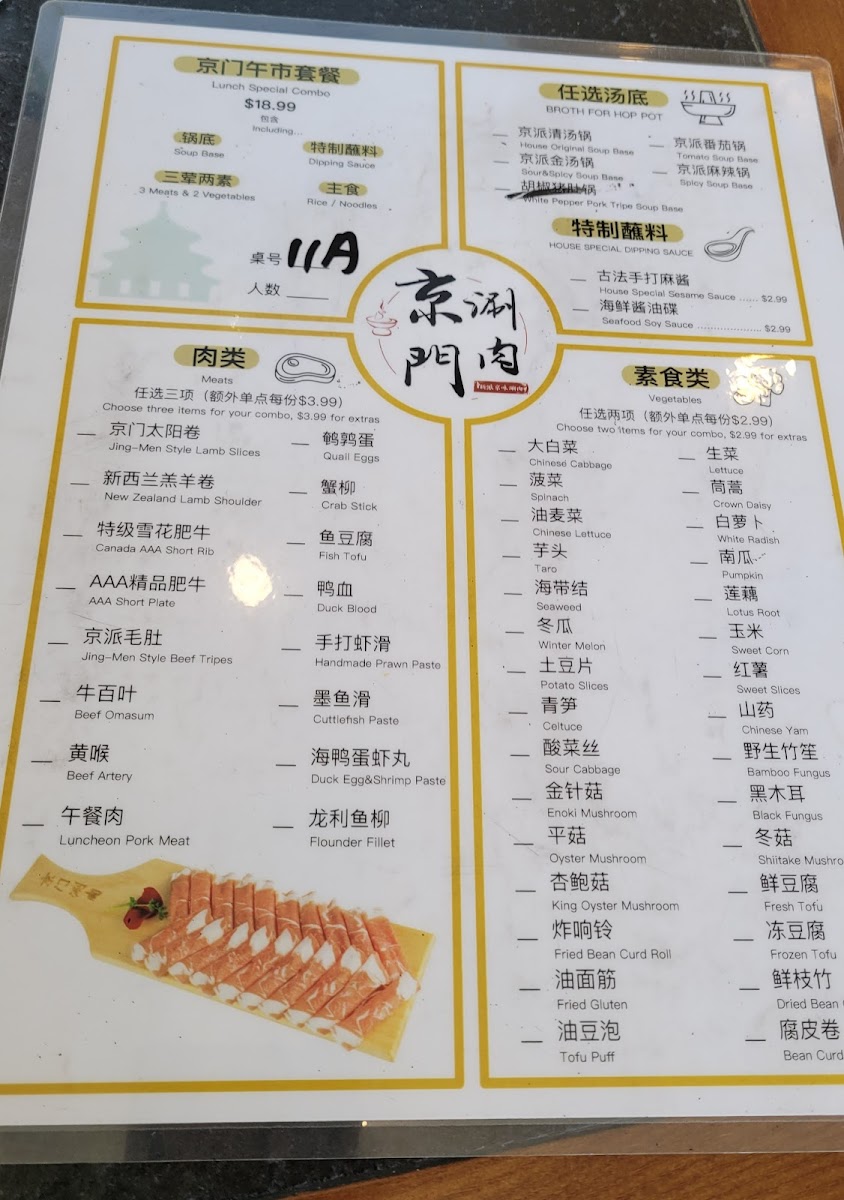 京门午市套餐
Lunch Special Combo
$18.99
包含
Including...
锅底
Soup Base
特制蘸料
Dipping Sauce
三荤两素
3 Meats & 2 Vegetables
主食
Rice / Noodles
桌号 11A
人数
任选汤底
BROTH FOR HOP POT
京派清汤锅
House Original Soup Base
京派番茄锅
Tomato Soup Base
京派金汤锅
Sour&Spicy Soup Base
京派麻辣锅
Spicy Soup Base
胡椒猪肚锅
White Pepper Pork Tripe Soup Base
特制蘸料
HOUSE SPECIAL DIPPING SAUCE
古法手打麻酱
House Special Sesame Sauce ...... $2.99
海鲜酱油碟
Seafood Soy Sauce ..................... $2.99
京門
涮肉
肉类
Meats
任选三项（额外单点每份$3.99）
Choose three items for your combo, $3.99 for extras
京门太阳卷
Jing-Men Style Lamb Slices
新西兰羔羊卷
New Zealand Lamb Shoulder
特级雪花肥牛
Canada AAA Short Rib
AAA精品肥牛
AAA Short Plate
京派毛肚
Jing-Men Style Beef Tripes
牛百叶
Beef Omasum
黄喉
Beef Artery
午餐肉
Luncheon Pork Meat
鹌鹑蛋
Quail Eggs
蟹柳
Crab Stick
鱼豆腐
Fish Tofu
鸭血
Duck Blood
手打虾滑
Handmade Prawn Paste
墨鱼滑
Cuttlefish Paste
海鸭蛋虾丸
Duck Egg&Shrimp Paste
龙利鱼柳
Flounder Fillet
素食类
Vegetables
任选两项（额外单点每份$2.99）
Choose two items for your combo, $2.99 for extras
大白菜
Chinese Cabbage
菠菜
Spinach
油麦菜
Chinese Lettuce
芋头
Taro
海带结
Seaweed
冬瓜
Winter Melon
土豆片
Potato Slices
青笋
Celtuce
酸菜丝
Sour Cabbage
金针菇
Enoki Mushroom
平菇
Oyster Mushroom
杏鲍菇
King Oyster Mushroom
炸响铃
Fried Bean Curd Roll
油面筋
Fried Gluten
油豆泡
Tofu Puff
生菜
Lettuce
茼蒿
Crown Daisy
白萝卜
White Radish
南瓜
Pumpkin
莲藕
Lotus Root
玉米
Sweet Corn
红薯
Sweet Slices
山药
Chinese Yam
野生竹笙
Bamboo Fungus
黑木耳
Black Fungus
冬菇
Shiitake Mushro
鲜豆腐
Fresh Tofu
冻豆腐
Frozen Tofu
鲜枝竹
Dried Bean
腐皮卷
Bean Curd